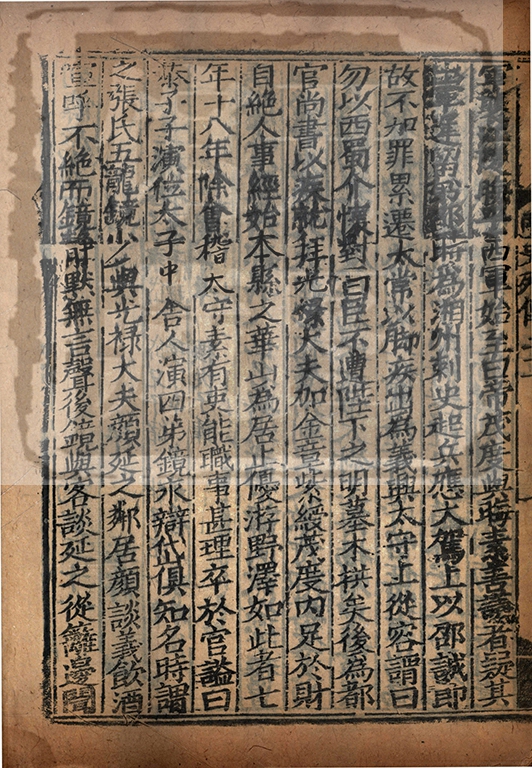 西軍始至白帝茂度與晦素善議者疑其
軍遲留弟邵時為湘州刺史起兵應大駕上以邵誠即
故不加罪累遷太常以脚疾出為義興太守上從容謂曰
勿以西蜀介懷對曰臣不遭陛下之明墓木拱矣後為都
官尚書以疾就拜光祿大夫加金章紫綬茂度內足於財
自絕人事經始本縣之華山為居止優游野澤如此者七
年十八年除會稽太守素有吏能職事甚理卒於官謚曰
恭子子演位太子中舍人演四弟鏡永辯岱俱知名時謂
之張氏五龍鏡少與光祿大夫顏延之鄰居顏談義飲酒
喧呼不絕而鏡靜默無言聲後鏡與客談延之從籬邊聞